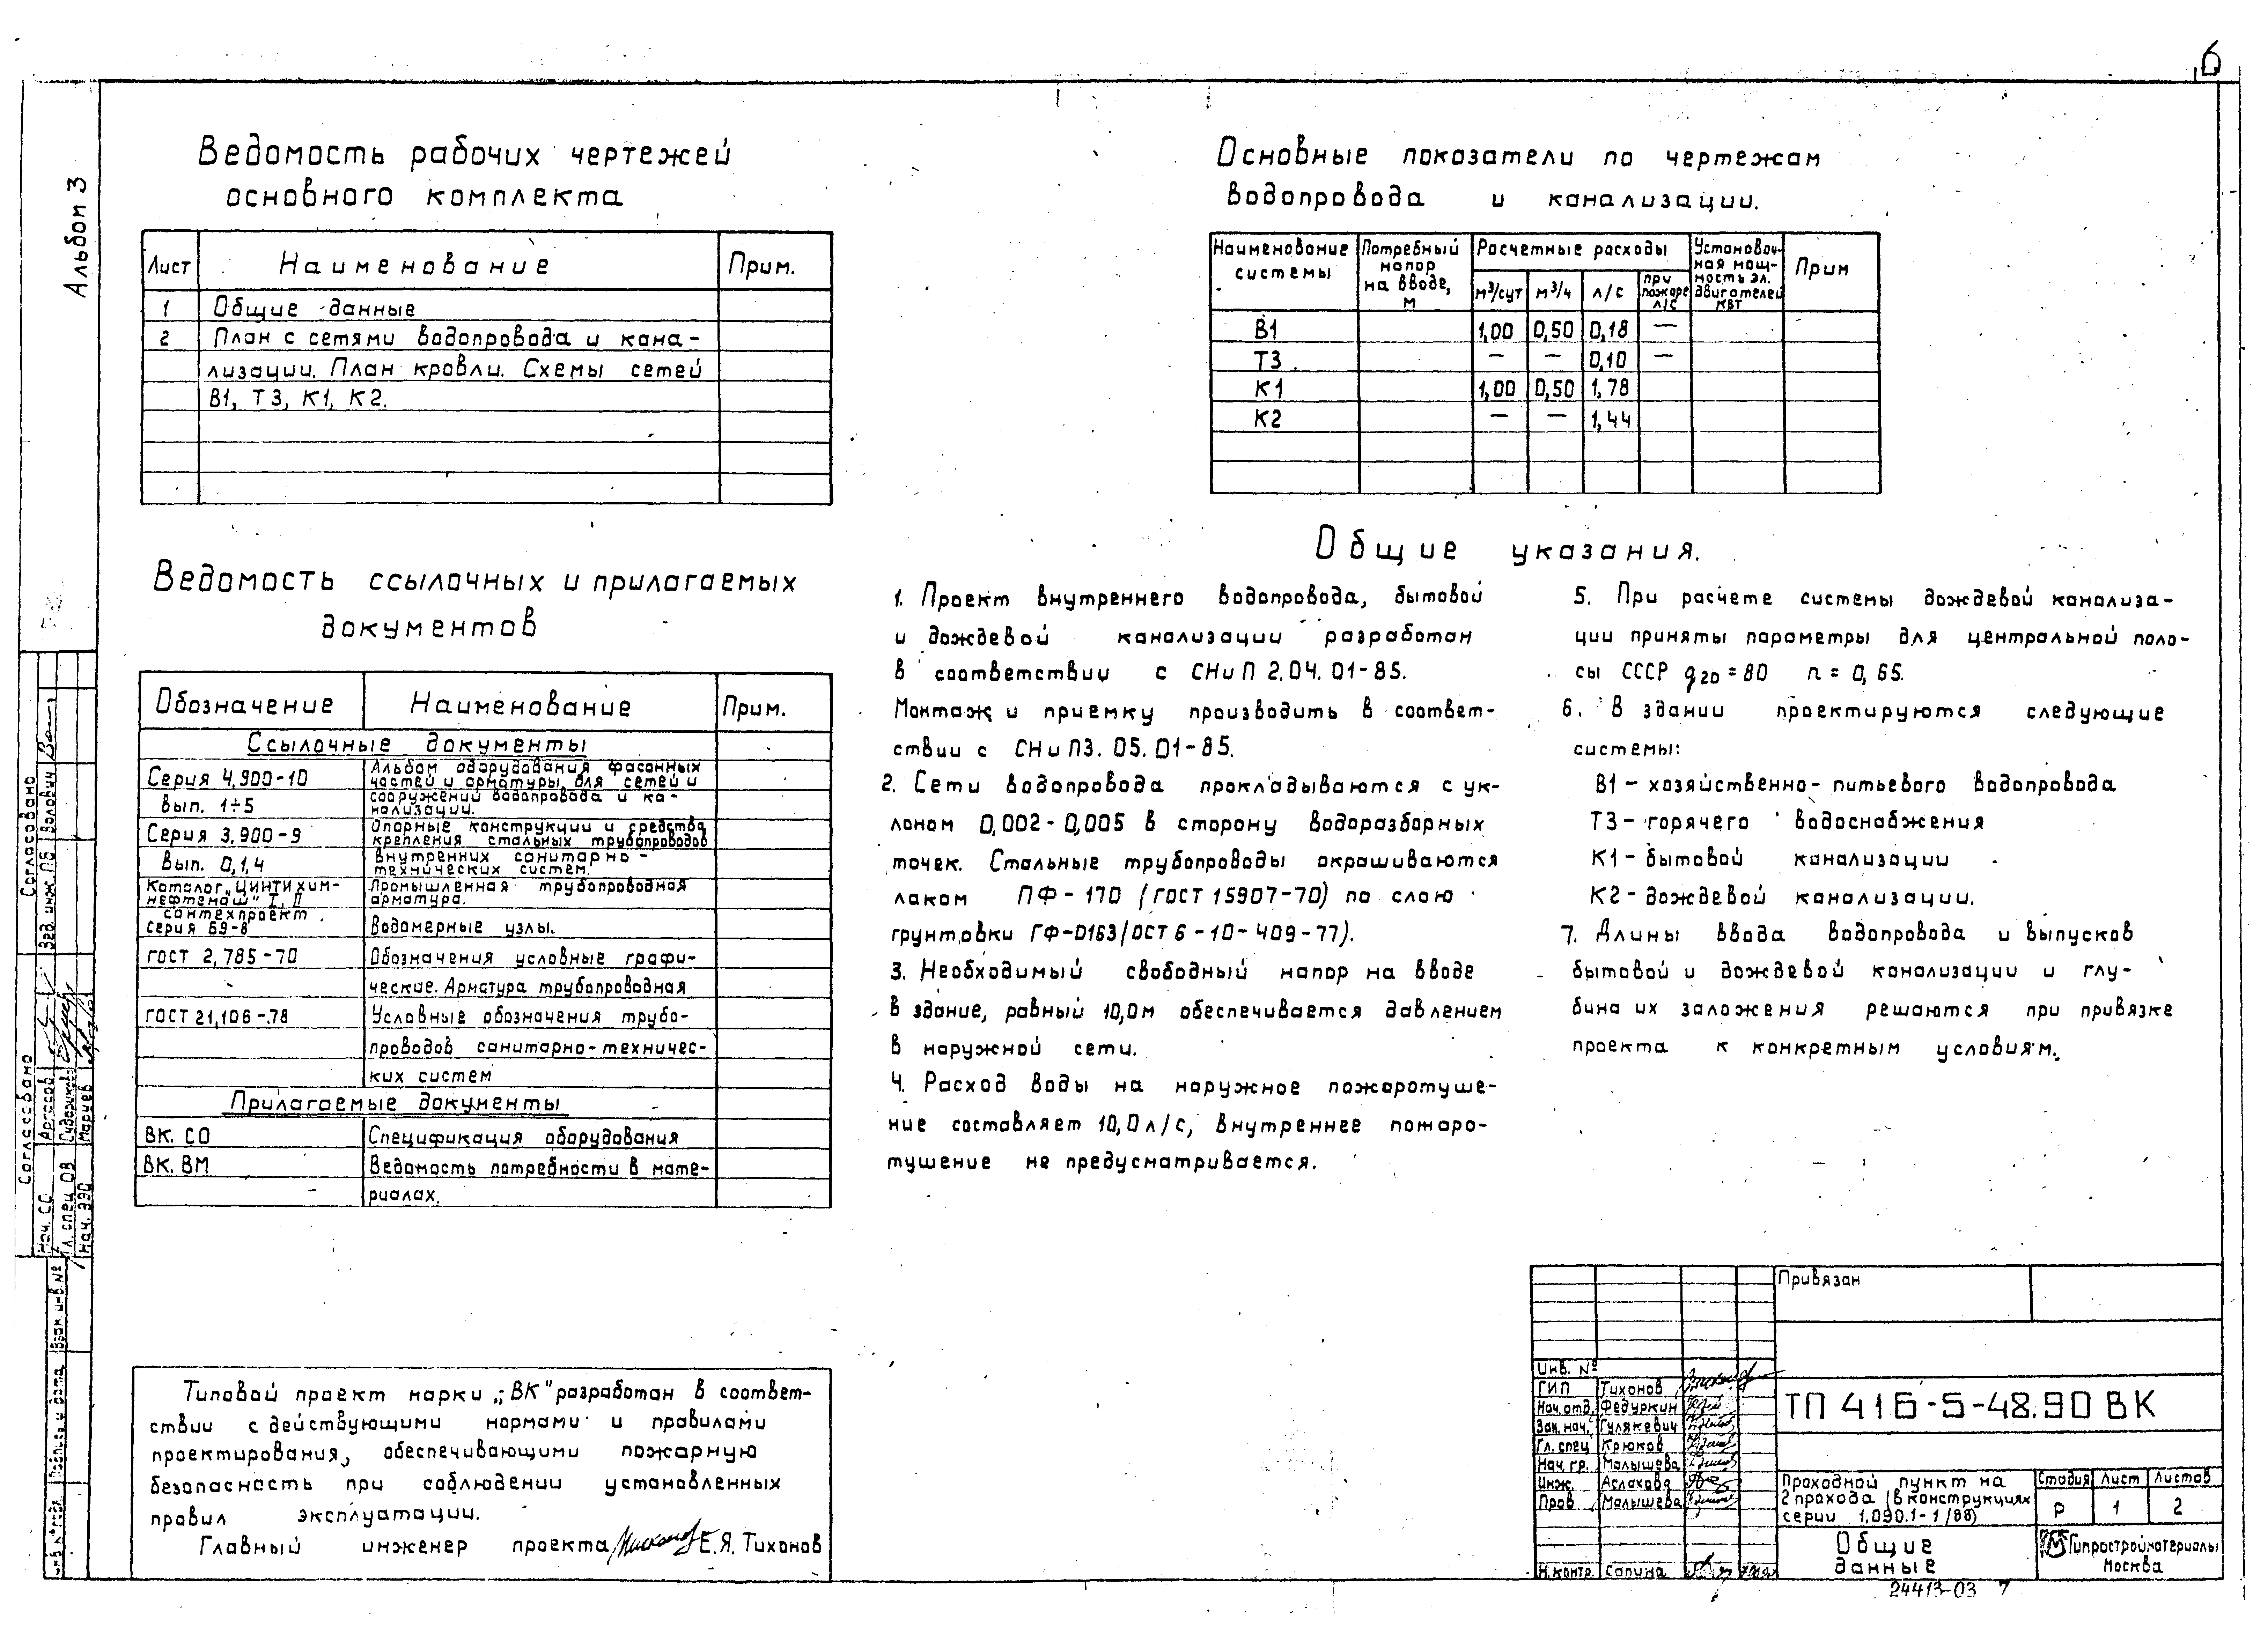 6
Альбом 3
Ведомость рабочих чертежей
основного комплекта
Лист Наименование Прим.
1 Общие данные
2 План с сетями водопровода и кана-
лизации. План кровли. Схемы сетей
В1, Т3, К1, К2.
Ведомость ссылочных и прилагаемых
документов
Обозначение Наименование Прим.
Ссылочные документы
Серия 4,900-10 Альбом оборудования фасонных
частей и арматуры для сетей и
Вып. 1÷5 сооружений водопровода и ка-
нализации.
Серия 3,900-9 Опорные конструкции и средства
крепления стальных трубопроводов
Вып. 0,1,4 внутренних санитарно-
технических систем.
Каталог „ЦИНТИхим- Промышленная трубопроводная
нефтемаш" I, II арматура.
сантехпроект
серия Б9-8 Водомерные узлы.
ГОСТ 2,785-70 Обозначения условные графи-
ческие. Арматура трубопроводная
ГОСТ 21,106-78 Условные обозначения трубо-
проводов санитарно-техничес-
ких систем
Прилагаемые документы
ВК. СО Спецификация оборудования
ВК. ВМ Ведомость потребности в мате-
риалах.
Типовой проект марки „ВК" разработан в соответ-
ствии с действующими нормами и правилами
проектирования, обеспечивающими пожарную
безопасность при соблюдении установленных
правил эксплуатации.
Главный инженер проекта Е.Я. Тихонов
Основные показатели по чертежам
водопровода и канализации.
Наименование системы Потребный напор на вводе, м Расчетные расходы Установоч-ная мощ-ность эл. двигателей квт Прим
м³/сут м³/ч л/с при пожаре л/с
В1 1,00 0,50 0,18 —
Т3 — — 0,10 —
К1 1,00 0,50 1,78
К2 — — 1,44
Общие указания.
1. Проект внутреннего водопровода, бытовой
и дождевой канализации разработан
в соответствии с СНиП 2.04.01-85.
Монтаж и приемку производить в соответ-
ствии с СНиП3.05.01-85.
2. Сети водопровода прокладываются с ук-
лоном 0,002-0,005 в сторону водоразборных
точек. Стальные трубопроводы окрашиваются
лаком ПФ-170 (ГОСТ 15907-70) по слою
грунтовки ГФ-0163/ОСТ 6-10-409-77).
3. Необходимый свободный напор на вводе
в здание, равный 10,0м обеспечивается давлением
в наружной сети.
4. Расход воды на наружное пожаротуше-
ние составляет 10,0 л/с, внутреннее пожаро-
тушение не предусматривается.
5. При расчете системы дождевой канализа-
ции приняты параметры для центральной поло-
сы СССР q20=80 n=0,65.
6. В здании проектируются следующие
системы:
В1-хозяйственно-питьевого водопровода
Т3-горячего водоснабжения
К1-бытовой канализации
К2-дождевой канализации.
7. Длины ввода водопровода и выпусков
бытовой и дождевой канализации и глу-
бина их заложения решаются при привязке
проекта к конкретным условиям.
Согласовано
Вед. инж. ПБ Волович
Согласовано
Нач. СО Арсеов
Гл. спец ОВ
Нач. ЭЭО Маричев
Взам. инв. №
Подпись и дата
Инв. № подл.
Привязан
Инв. №
ГИП Тихонов
Нач.отд. Федуркин
Зам. нач. Гулякевич
Гл. спец Крюков
Нач. гр. Малышева
Инж. Аслахова
Пров Малышева
Н.контр. Сапина
ТП 416-5-48.90 ВК
Проходной пункт на
2 прохода (в конструкциях
серии 1.090.1-1/88)
Стадия Лист Листов
Р 1 2
Общие
данные
Гипростройматериалы
Москва
24413-03 7